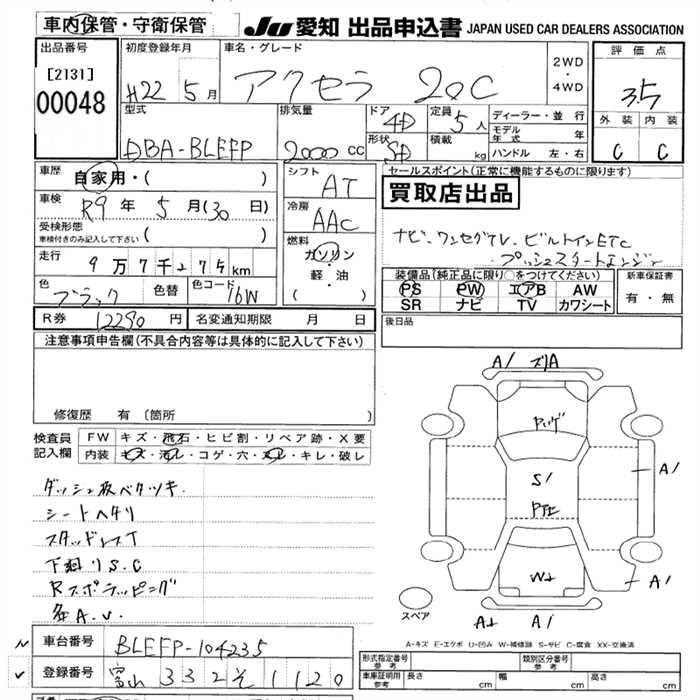 車内保管・守衛保管
JU 愛知 出品申込書 JAPAN USED CAR DEALERS ASSOCIATION
出品番号
[2131]
00048
初度登録年月
H22 5月
車名・グレード
アクセラ 20C
2WD
・
4WD
評価点
3.5
外装 内装
C C
型式
DBA-BLEFP
排気量
2000 CC
ドア
4D
形状
SD
定員
5人
積載
kg
ディーラー・並行
モデル年式 年
ハンドル 左・右
車歴
自家用・( )
車検
R9年 5月(30日)
受検形態
車検付きのみ記入して下さい ( )
走行
9万7千275km
色
ブラック
色替
色コード
16W
シフト
AT
冷房
AAC
燃料
ガソリン
軽・油
( )
セールスポイント(正常に機能するものに限ります)
買取店出品
ナビ・ワンセグTV・ビルトインETC
・プッシュスタートエンジン
装備品(純正品に限り○をつけてください)
PS PW エアB AW
SR ナビ TV カワシート
新車保証書
有・無
R券
12290円
名変通知期限 月 日
後日品
注意事項申告欄(不具合内容等は具体的に記入して下さい)
修復歴 有 (箇所
検査員記入欄
FW キズ・飛石・ヒビ割・リペア跡・X要
内装 キズ・汚レ・コゲ・穴・スレ・キレ・破レ
ダッシュ板ベタツキ
シートヘタリ
スタッドレスT
下廻りS.C
Rスポラッピング
各A.U.
A1 ズリA
S1
A1
A1
W2
A2 A1
スペア
A-キズ E-エクボ U-凹み W-補修跡 S-サビ C-腐食 XX-交換済
車台番号
BLEFP-104235
登録番号
富山 332 そ 1120
形式指定番号
参考
類別区分番号
参考
車庫証明用
参考
長さ cm
幅 cm
高さ cm